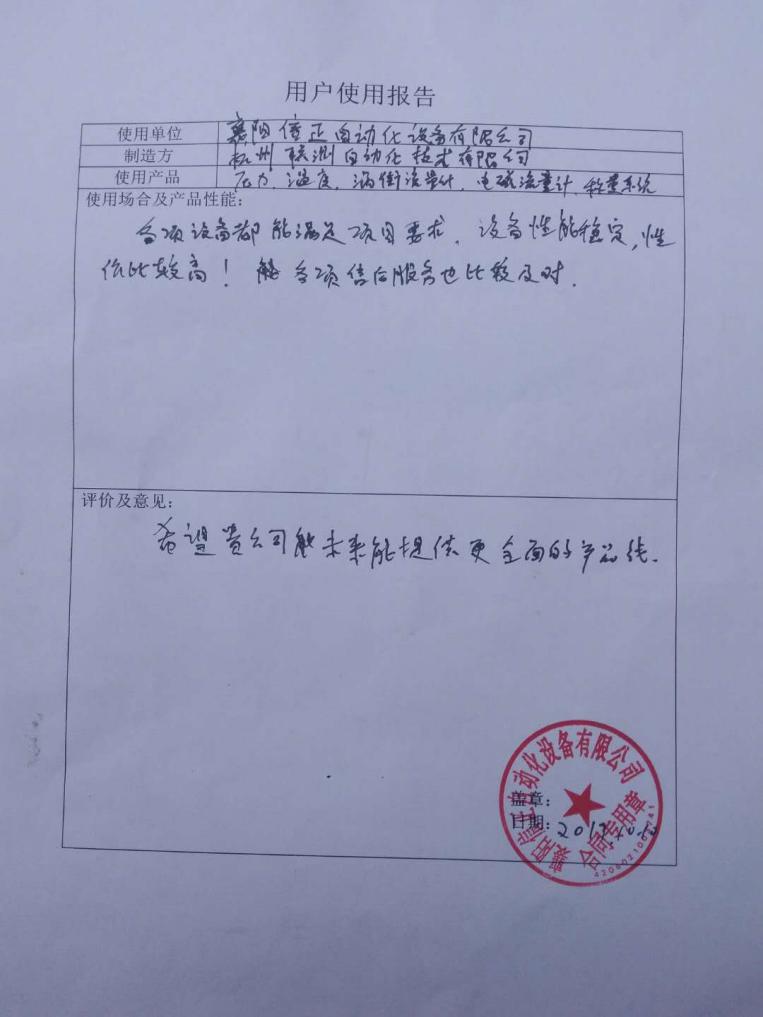 用户使用报告
使用单位 襄阳信正自动化设备有限公司
制造方 杭州联测自动化技术有限公司
使用产品 压力、温度、涡街流量计、电磁流量计、称重系统
使用场合及产品性能：
各项设备都能满足项目要求，设备性能稳定，性
价比较高！ 各项售后服务也比较及对．
评价及意见：
希望贵公司 未来能提供更全面的产品线．
襄阳信正自动化设备有限公司
盖章：
日期：
合同专用章